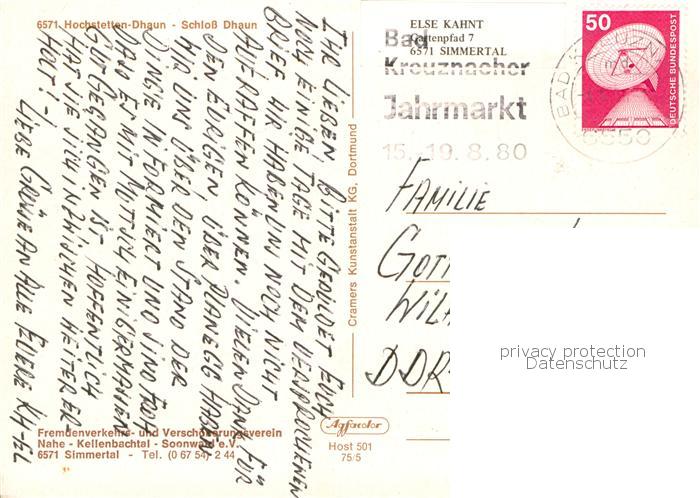 6571 Hochstetten-Dhaun - Schloß Dhaun
IHR LIEBEN, BITTE GEDULDET EUCH
NOCH EINIGE TAGE MIT DEM VERSPROCHENEN
BRIEF. WIR HABEN UNS NOCH NICHT
AUFRAFFEN KÖNNEN. VIELEN DANK FÜR
DEN EURIGEN. ÜBER PLANEGG HABEN
WIR UNS ÜBER DEN STAND DER
DINGE INFORMIERT UND SIND FROH
DASS ES MIT MUTTI SO EINIGERMASSEN
GUT GEGANGEN IST. HOFFENTLICH
HAT SIE SICH INZWISCHEN WEITER ER-
HOLT! -
LIEBE GRÜSSE AN ALLE EUERE
Fremdenverkehrs- und Verschönerungsverein
Nahe - Kellenbachtal - Soonwald e.V.
6571 Simmertal - Tel. (0 67 54) 2 44
Cramers Kunstanstalt KG, Dortmund
Agfacolor
Host 501
75/5
ELSE KAHNT
Gartenpfad 7
6571 SIMMERTAL
Bad
Kreuznacher
Jahrmarkt
15.-19.8.80
50
DEUTSCHE BUNDESPOST
BAD KREUZN
6550
FAMILIE
GOT
WIL
DDR
privacy protection
Datenschutz